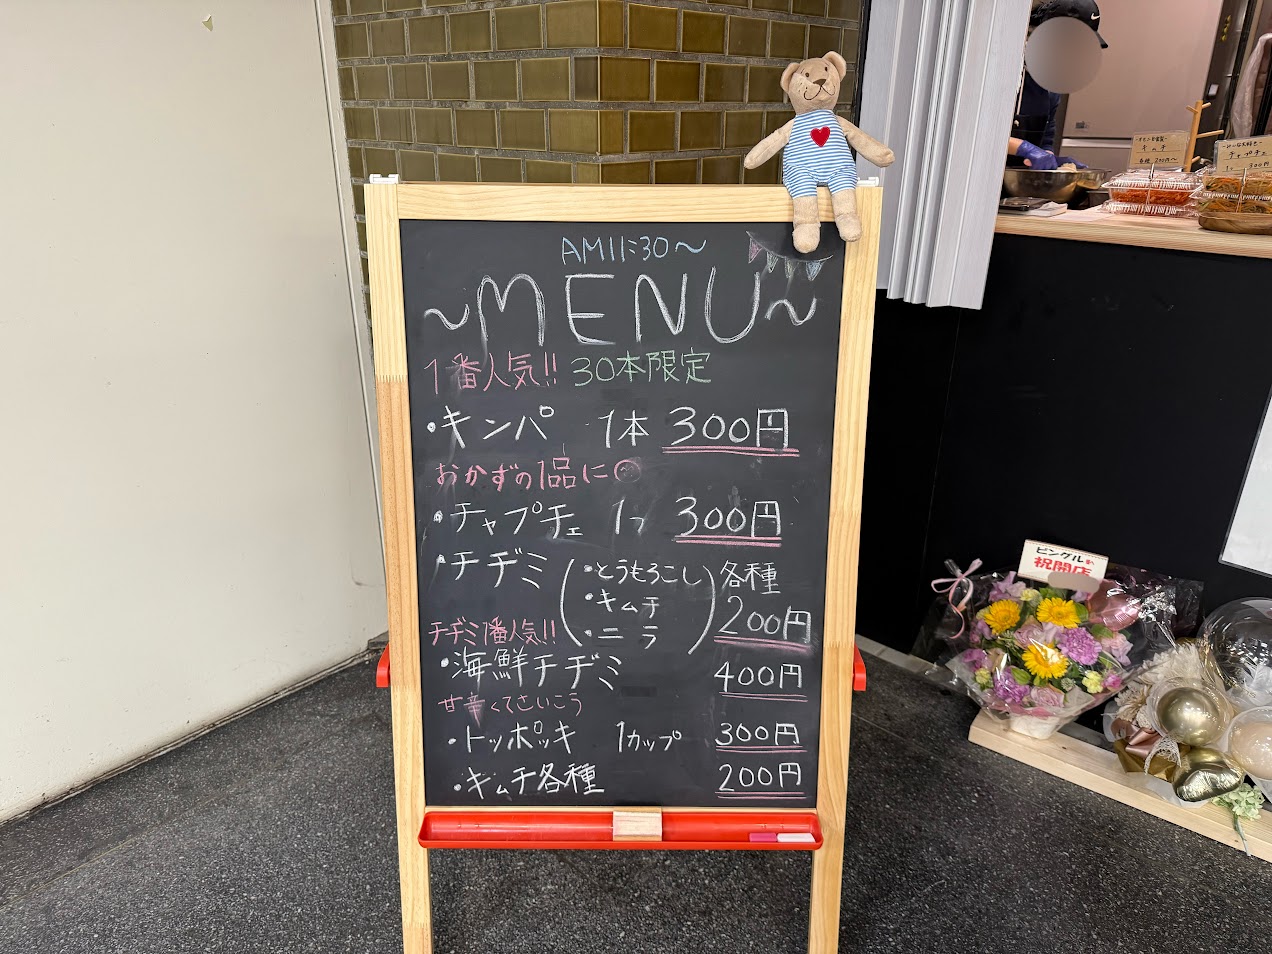 AM11:30〜
〜MENU〜
1番人気!! 30本限定
・キンパ 1本 300円
おかずの1品に
・チャプチェ 1つ 300円
・チヂミ (・とうもろこし ・キムチ ・ニラ) 各種 200円
チヂミ1番人気!!
・海鮮チヂミ 400円
甘辛くてさいこう
・トッポッキ 1カップ 300円
・キムチ各種 200円
キムチ
各種 200円〜
チャプチェ
300円
ピングル
祝開店